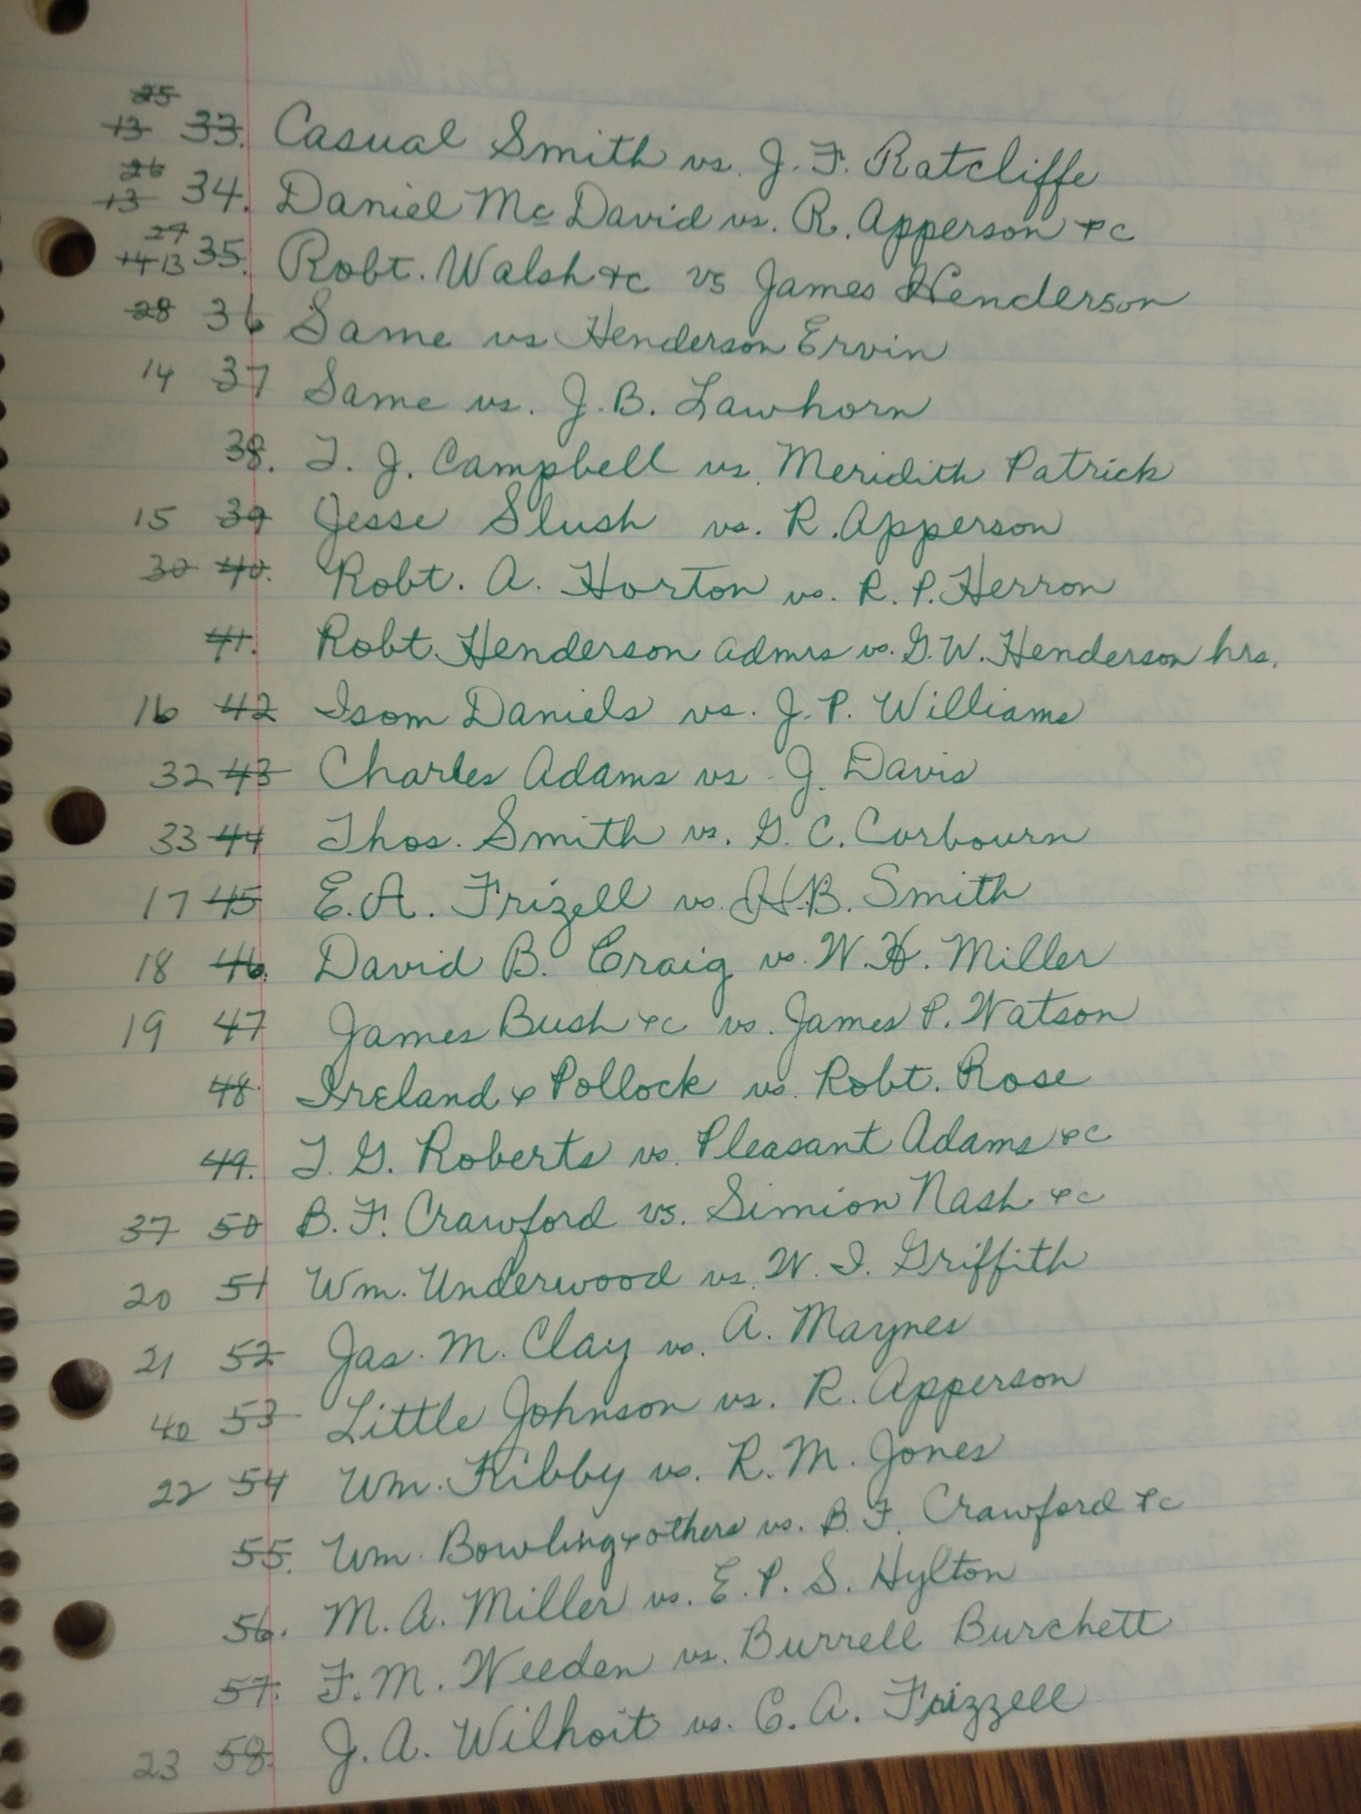 25
13 33. Casual Smith vs. J. F. Ratcliffe
26
13 34. Daniel Mc David vs. R. Apperson &c
27
14 13 35. Robt. Walsh &c vs James Henderson
28 36 Same vs Henderson Ervin
14 37 Same vs. J. B. Lawhorn
38. T. J. Campbell vs. Meridith Patrick
15 39 Jesse Slush vs. R. Apperson
30 40. Robt. A. Horton vs. R. P. Herron
41. Robt. Henderson admrs vs. G. W. Henderson hrs.
16 42 Isom Daniels vs. J. P. Williams
32 43 Charles Adams vs J. Davis
33 44 Thos. Smith vs. G. C. Carbourn
17 45 E. A. Frizell vs. H. B. Smith
18 46. David B. Craig vs. W. H. Miller
19 47 James Bush &c vs. James P. Watson
48. Ireland & Pollock vs. Robt. Rose
49. T. G. Roberts vs. Pleasant Adams &c
37 50 B. F. Crawford vs. Simion Nash &c
20 51 Wm. Underwood vs. W. I. Griffith
21 52 Jas. M. Clay vs. A. Maynes
40 53 Little Johnson vs. R. Apperson
22 54 Wm. Kibby vs. R. M. Jones
55. Wm. Bowling & others vs. B. F. Crawford &c
56. M. A. Miller vs. E. P. S. Hylton
57. F. M. Weeden vs. Burrell Burchett
23 58. J. A. Wilhoit vs. C. A. Frizzell